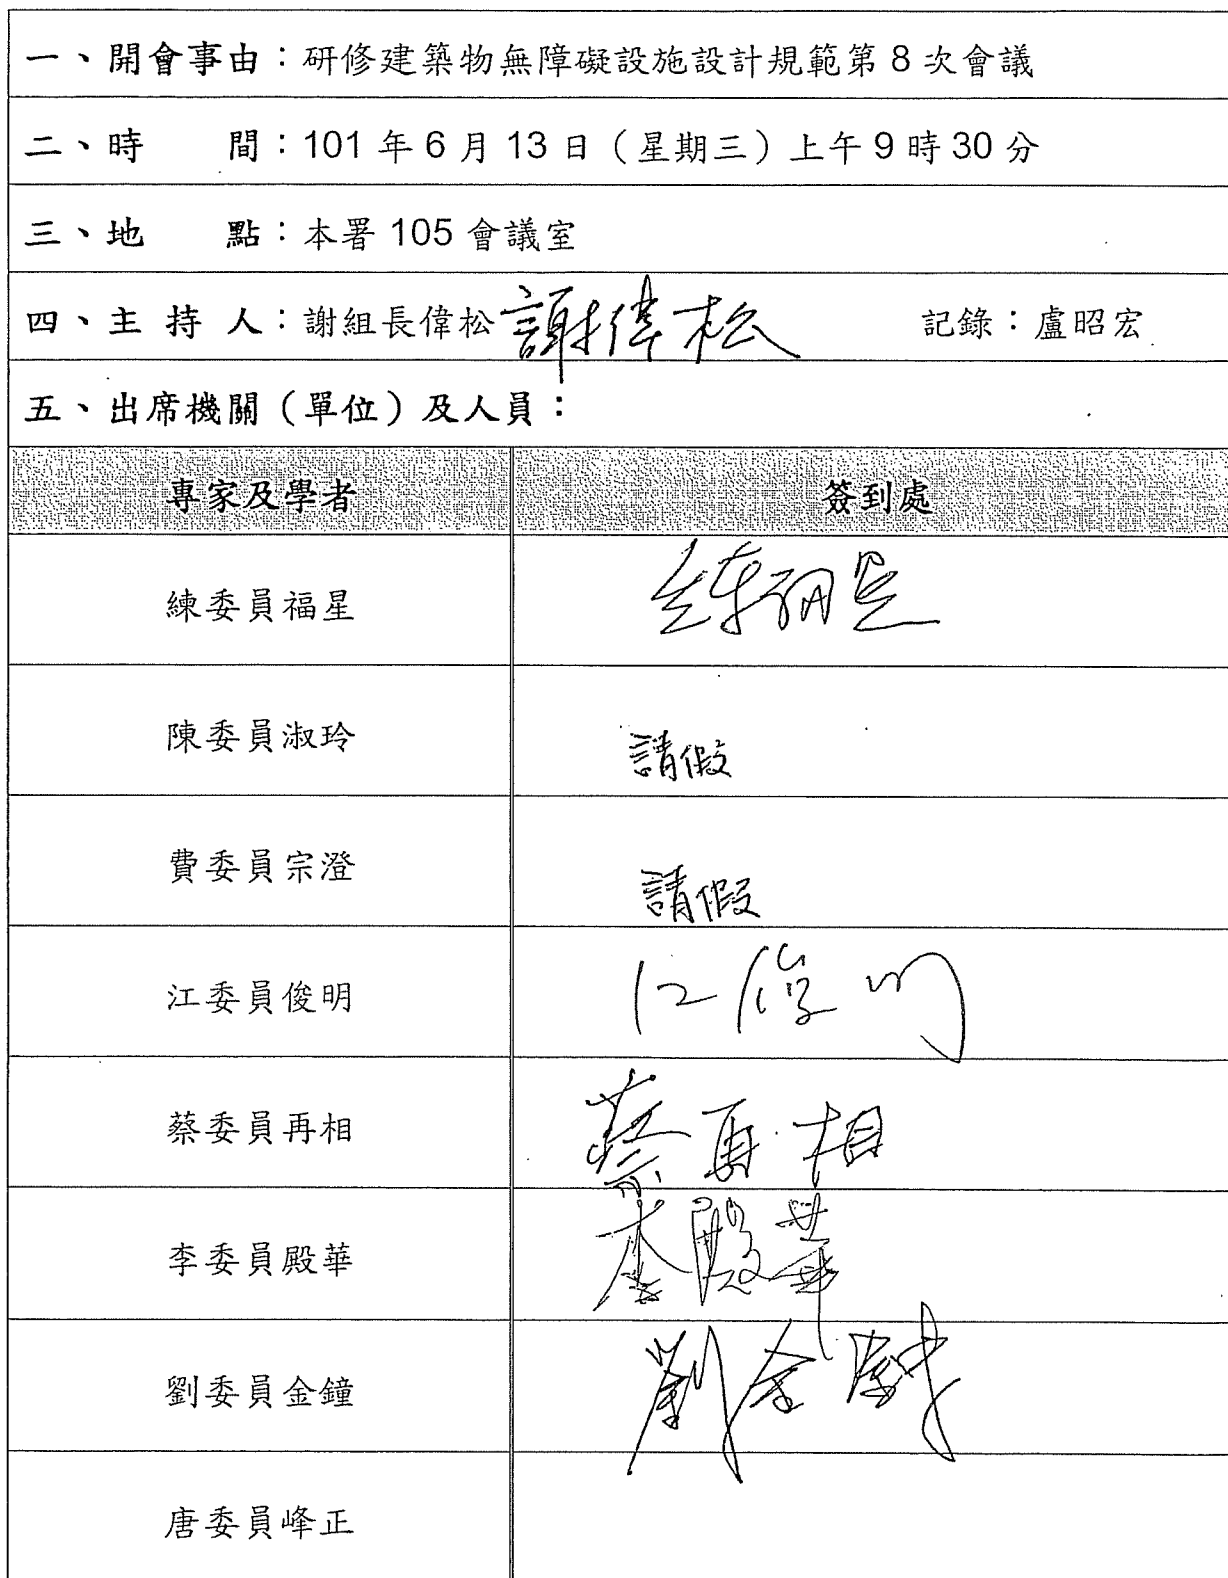 一、開會事由：研修建築物無障礙設施設計規範第 8 次會議
二、時　　間：101 年 6 月 13 日（星期三）上午 9 時 30 分
三、地　　點：本署 105 會議室
四、主 持 人：謝組長偉松 謝偉松 記錄：盧昭宏
五、出席機關（單位）及人員：
專家及學者 簽到處
練委員福星 練福星
陳委員淑玲 請假
費委員宗澄 請假
江委員俊明 江俊明
蔡委員再相 蔡再相
李委員殿華 李殿華
劉委員金鐘 劉金鐘
唐委員峰正